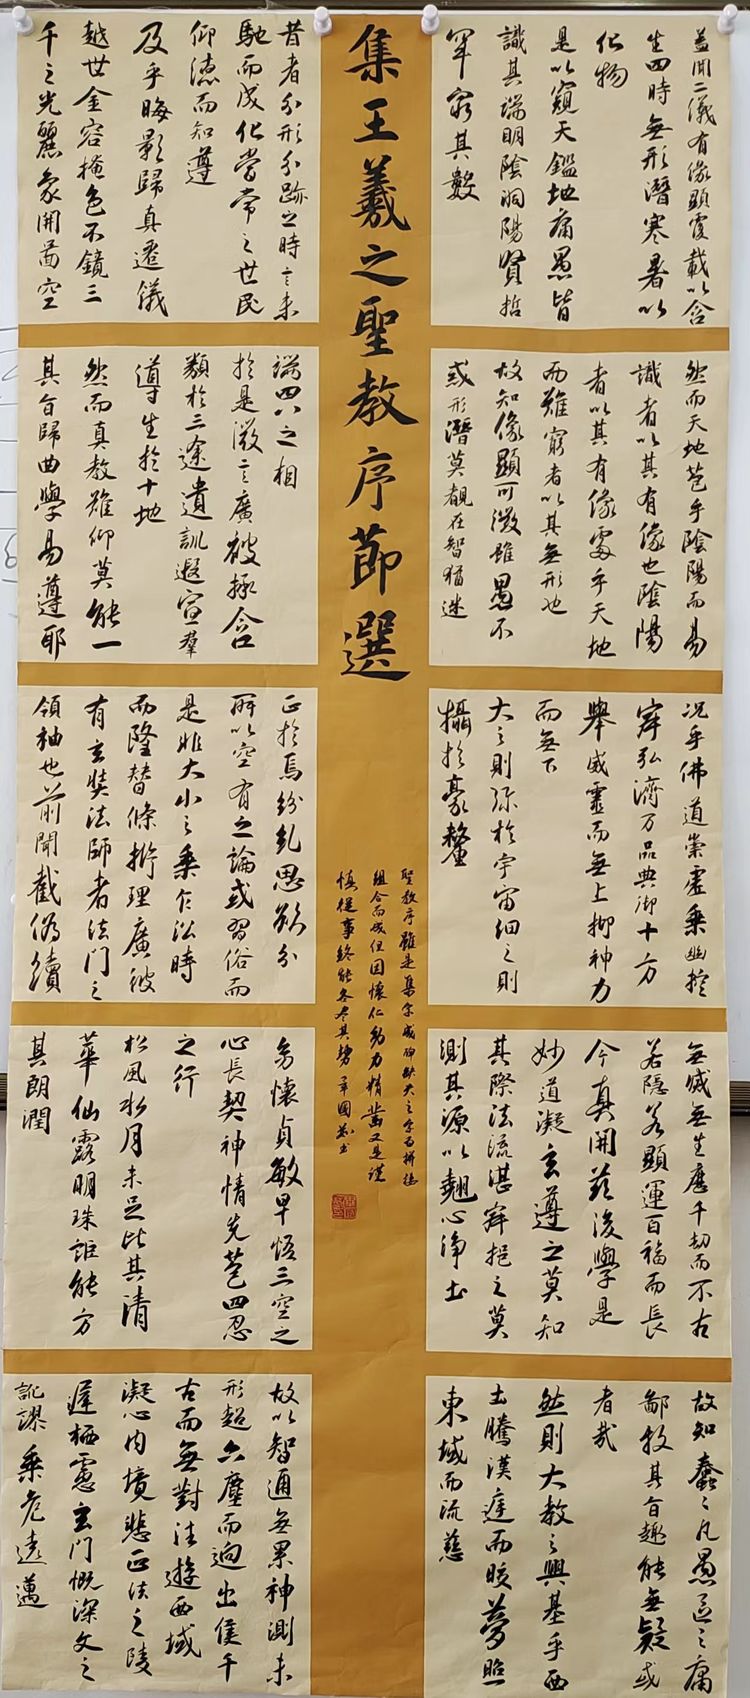 集王羲之聖教序節選
蓋聞二儀有像顯覆載以含
生四時無形潛寒暑以
化物
是以窺天鑑地庸愚皆
識其端明陰洞陽賢哲
罕窮其數
然而天地苞乎陰陽而易
識者以其有像也陰陽
者以其有像處乎天地
而難窮者以其無形也
故知像顯可徵雖愚不
惑形潛莫覩在智猶迷
況乎佛道崇虛乘幽控
寂弘濟万品典御十方
舉威靈而無上抑神力
而無下
大之則彌於宇宙細之則
攝於豪釐
無滅無生歷千劫而不古
若隱若顯運百福而長
今真開茲後學是
妙道凝玄遵之莫知
其際法流湛寂挹之莫
測其源以翹心淨土
故知蠢〻凡愚區〻庸
鄙投其旨趣能無疑或
者哉
然則大教之興基乎西
土騰漢庭而皎夢照
東域而流慈
昔者分形分跡之時言未
馳而成化當常之世民
仰德而知遵
及乎晦影歸真遷儀
越世金容掩色不鏡三
千之光麗象開圖空
端四八之相
於是微言廣被拯含
類於三途遺訓遐宣羣
導生於十地
然而真教難仰莫能一
其旨歸曲學易遵耶
正於焉紛糺思欲分
所以空有之論或習俗而
是非大小之乘乍沿時
而隆替條析理廣彼
有玄奘法師者法門之
領袖也前聞截偽續
為懷貞敏早悟三空之
心長契神情先苞四忍
之行
松風水月未足比其清
華仙露明珠詎能方
其朗潤
故以智通無累神測未
形超六塵而迥出隻千
古而無對法遊西域
凝心內境悲正法之陵
遲栖慮玄門慨深文之
訛謬乘危遠邁
聖教序雖是集字成碑缺失之字而拼接
組合而成但因懷仁功力精㴱又是謹
慎從事終能各尽其勢 書